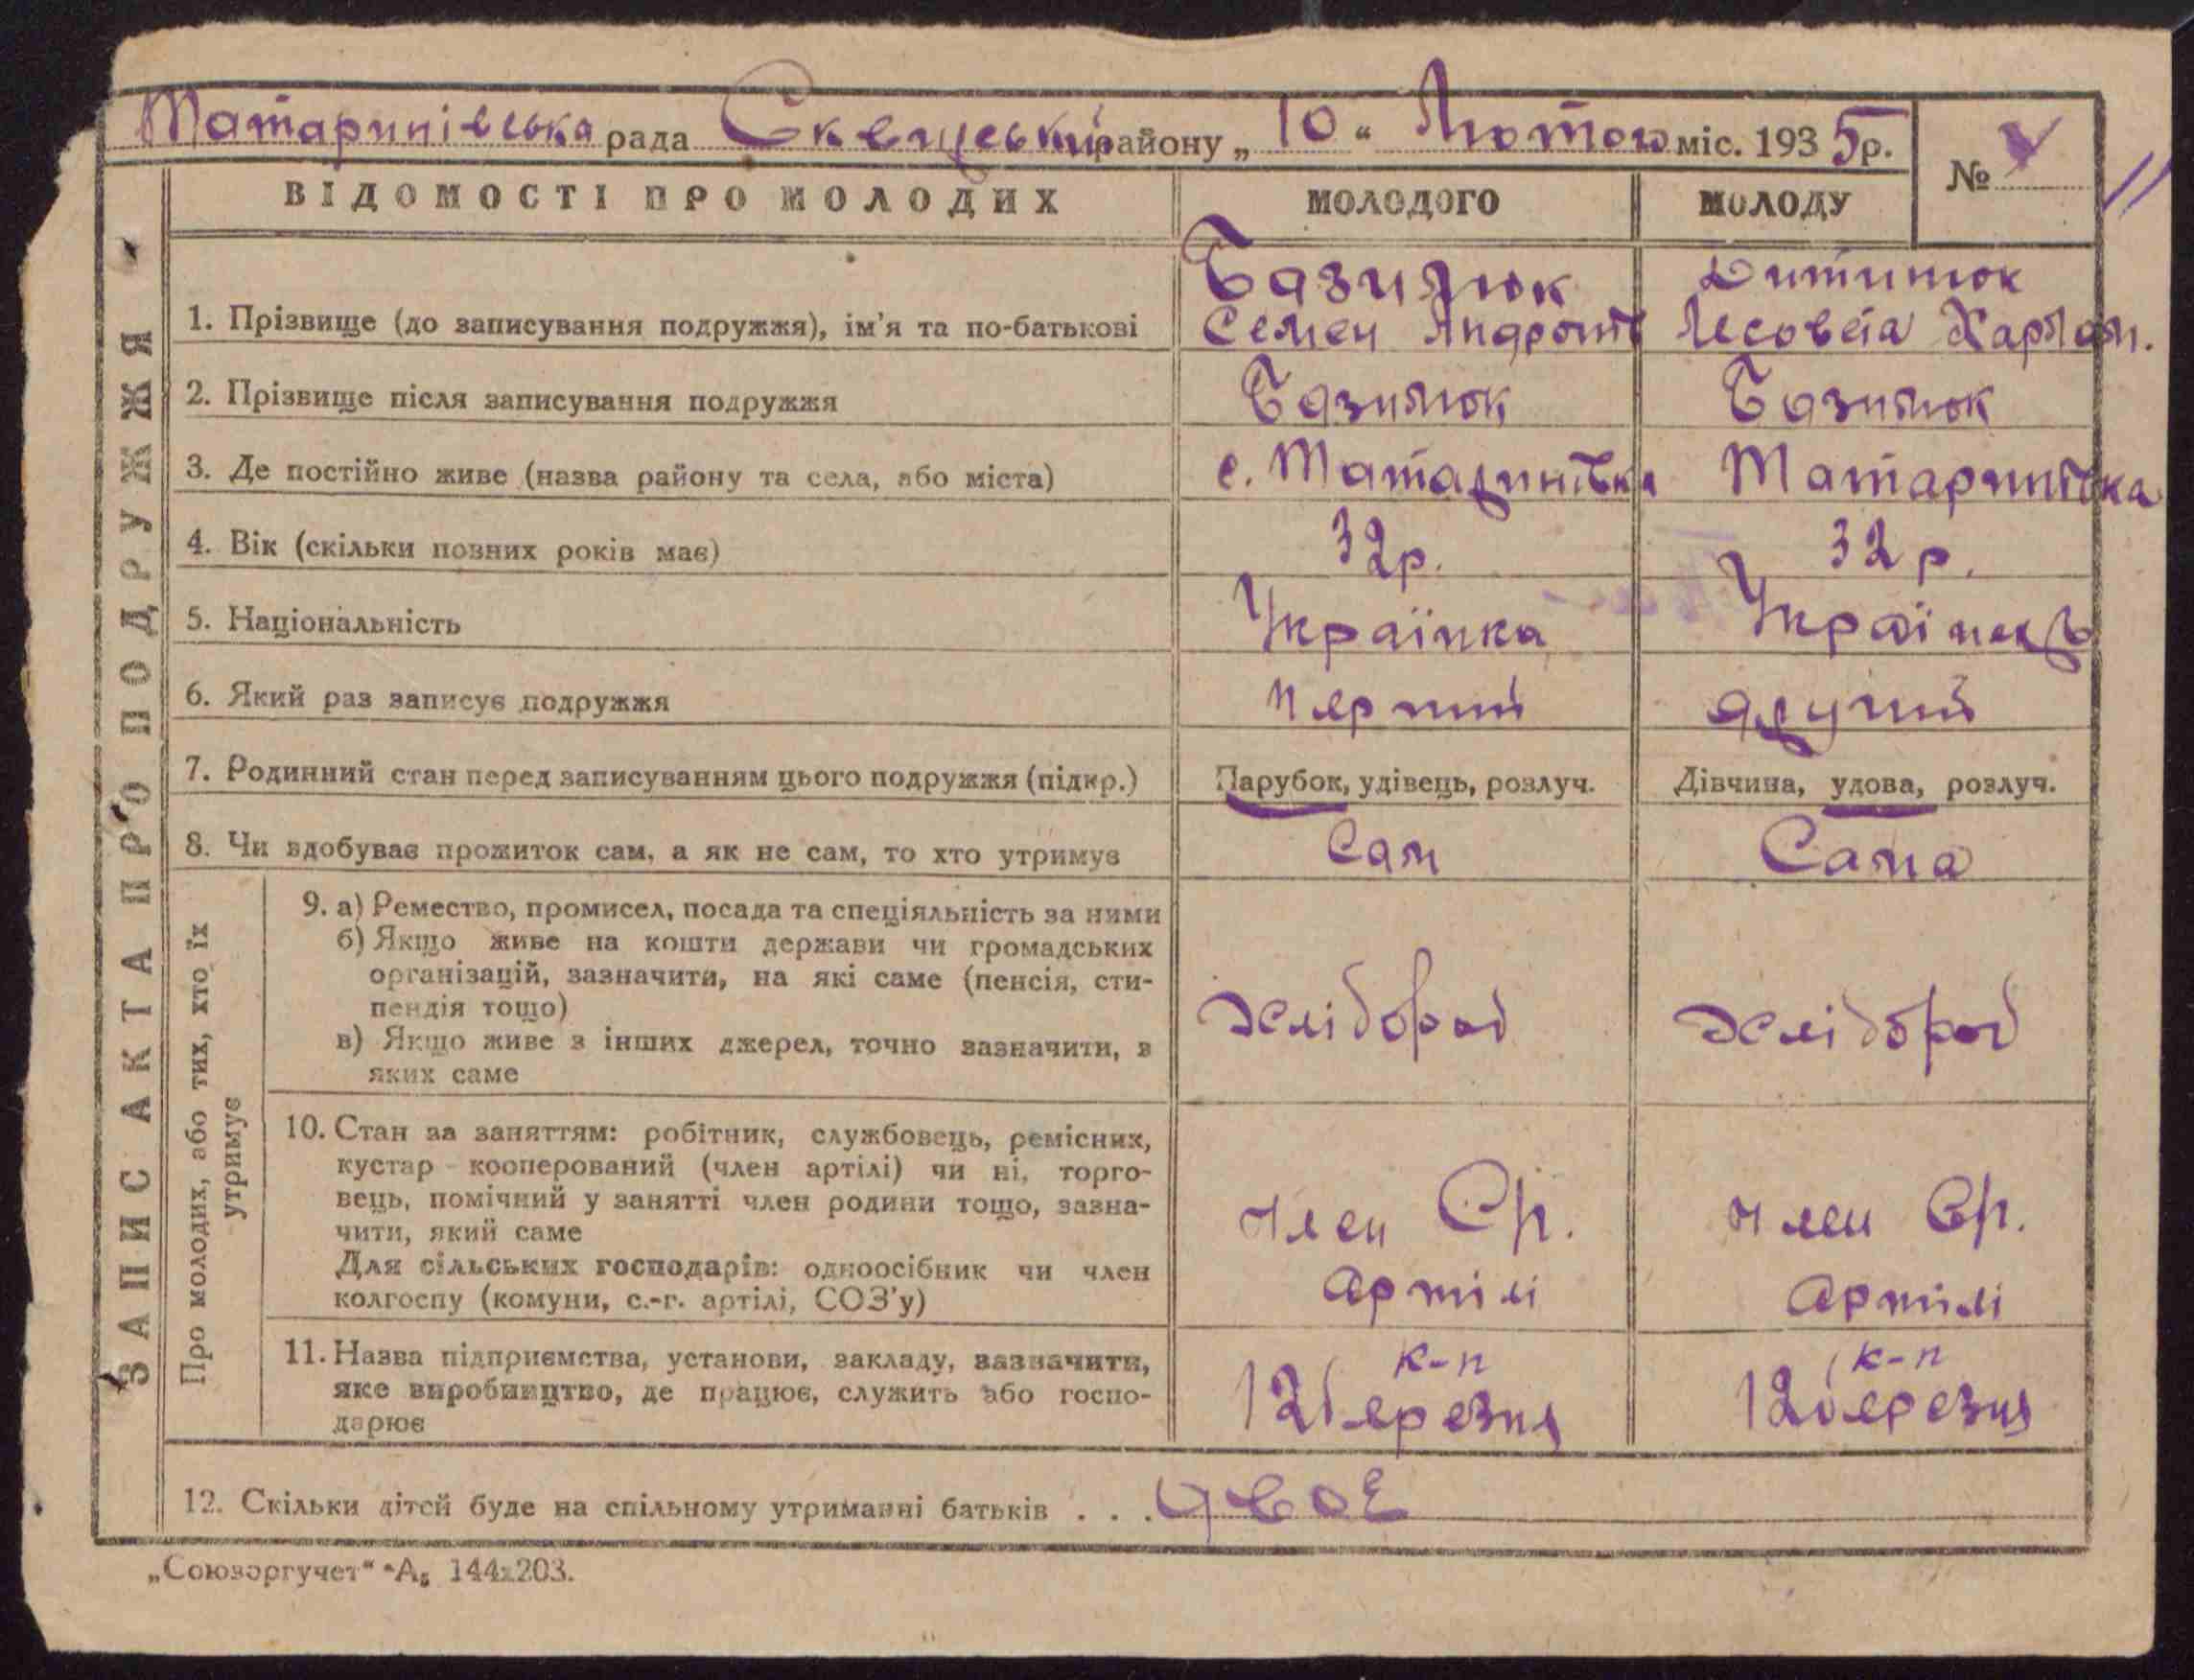 Татаринівська рада Сквирський району „10“ Лютого міс. 1935 р.
№
ВІДОМОСТІ ПРО МОЛОДИХ
МОЛОДОГО
МОЛОДУ
ЗАПИС АКТА ПРО ПОДРУЖЖЯ
1. Прізвище (до записування подружжя), ім'я та по-батькові
Базилюк
Семен
Харлам.
2. Прізвище після записування подружжя
Базилюк
Базилюк
3. Де постійно живе (назва району та села, або міста)
с. Татаринівка
Татаринівка
4. Вік (скільки повних років має)
32р.
32 р.
5. Національність
Українка
Українець
6. Який раз записує подружжя
перший
другий
7. Родинний стан перед записуванням цього подружжя (підкр.)
Парубок, удівець, розлуч.
Дівчина, удова, розлуч.
8. Чи здобуває прожиток сам, а як не сам, то хто утримує
Сам
Сама
Про молодих, або тих, хто їх
утримує
9. а) Ремество, промисел, посада та спеціяльність за ними
б) Якщо живе на кошти держави чи громадських
організацій, зазначити, на які саме (пенсія, сти-
пендія тощо)
в) Якщо живе з інших джерел, точно зазначити, з
яких саме
хлібороб
хлібороб
10. Стан за заняттям: робітник, службовець, ремісник,
кустар - кооперований (член артілі) чи ні, торго-
вець, помічний у занятті член родини тощо, зазна-
чити, який саме
Для сільських господарів: одноосібник чи член
колгоспу (комуни, с.-г. артілі, СОЗ'у)
член
артілі
член
артілі
11. Назва підприємства, установи, закладу, зазначити,
яке виробництво, де працює, служить або госпо-
дарює
к-п
12 березня
к-п
12 березня
12. Скільки дітей буде на спільному утриманні батьків . . . двоє
„Союзоргучет“ А₅ 144x203.